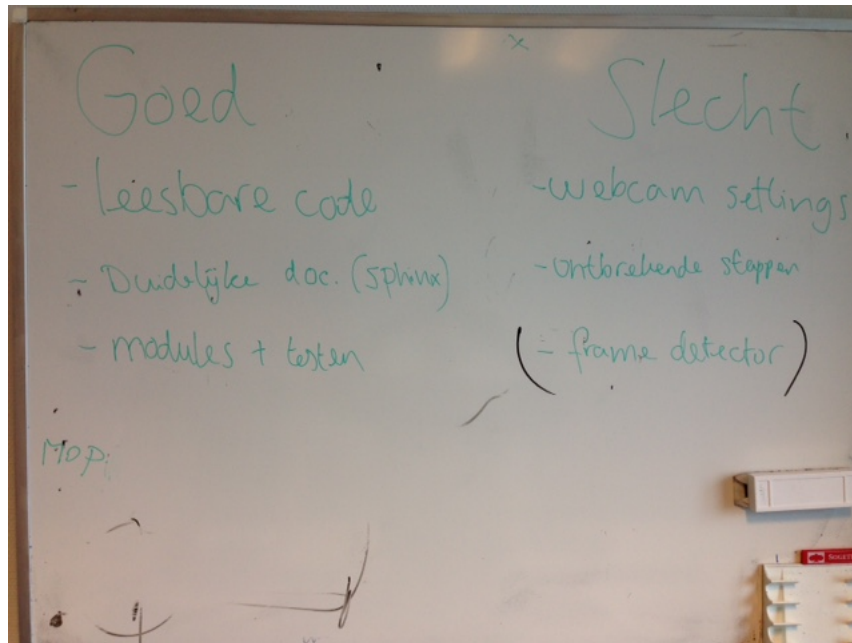 Goed
- leesbare code
- Duidelijke doc. (sphinx)
- modules + testen
MOP:
Slecht
- webcam settings
- ontbrekende stappen
(- frame detector)